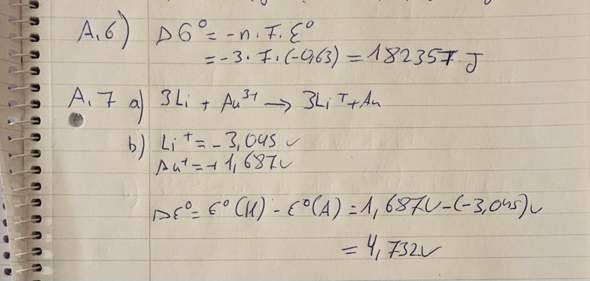 A.6) ΔG° = -n·F·ε°
= -3·F·(-0,63) = 182357 J
A.7 a) 3Li + Au³⁺ → 3Li⁺ + Au
b) Li⁺ = -3,045 V
Au⁺ = +1,687V
Δε° = ε°(K) - ε°(A) = 1,687V - (-3,045)V
= 4,732V